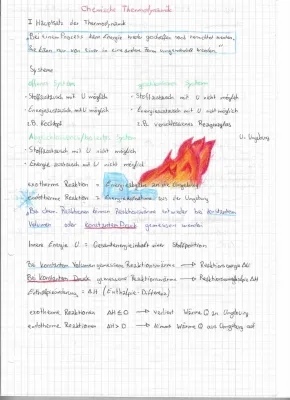 Chemische Thermodynamik
I Hauptsatz der Thermodynamik
"Bei einem Prozess kann Energie weder geschaffen noch vernichtet werden.
Sie kann nur von einer in eine andere Form umgewandelt werden."
Systeme
offenes System geschlossenes System
- Stoffaustausch mit U möglich - Stoffaustausch mit U nicht möglich
- Energieaustausch mit U möglich - Energieaustausch mit U möglich
z.B. Kochtopf z.B. verschlossenes Reagenzglas
System U = Umgebung
- Stoffaustausch mit U nicht möglich
- Energieaustausch mit U nicht möglich
exotherme Reaktion = Energieabgabe an die Umgebung
endotherme Reaktion = Energieaufnahme aus der Umgebung
Bei chem. Reaktionen können Reaktionswärme entweder bei konstantem
Volumen oder konstantem Druck gemessen werden
Innere Energie U = Gesamtenergieinhalt einer Stoffportion
Bei konstantem Volumen gemessene Reaktionswärme → Reaktionsenergie ΔU
Bei konstantem Druck gemessene Reaktionswärme → Reaktionsenthalpie ΔH
Enthalpieänderung = ΔH (Enthalpie-Differenz)
exotherme Reaktionen ΔH ≤ 0 → verliert Wärme Q an Umgebung
endotherme Reaktionen ΔH > 0 → nimmt Wärme Q aus Umgebung auf